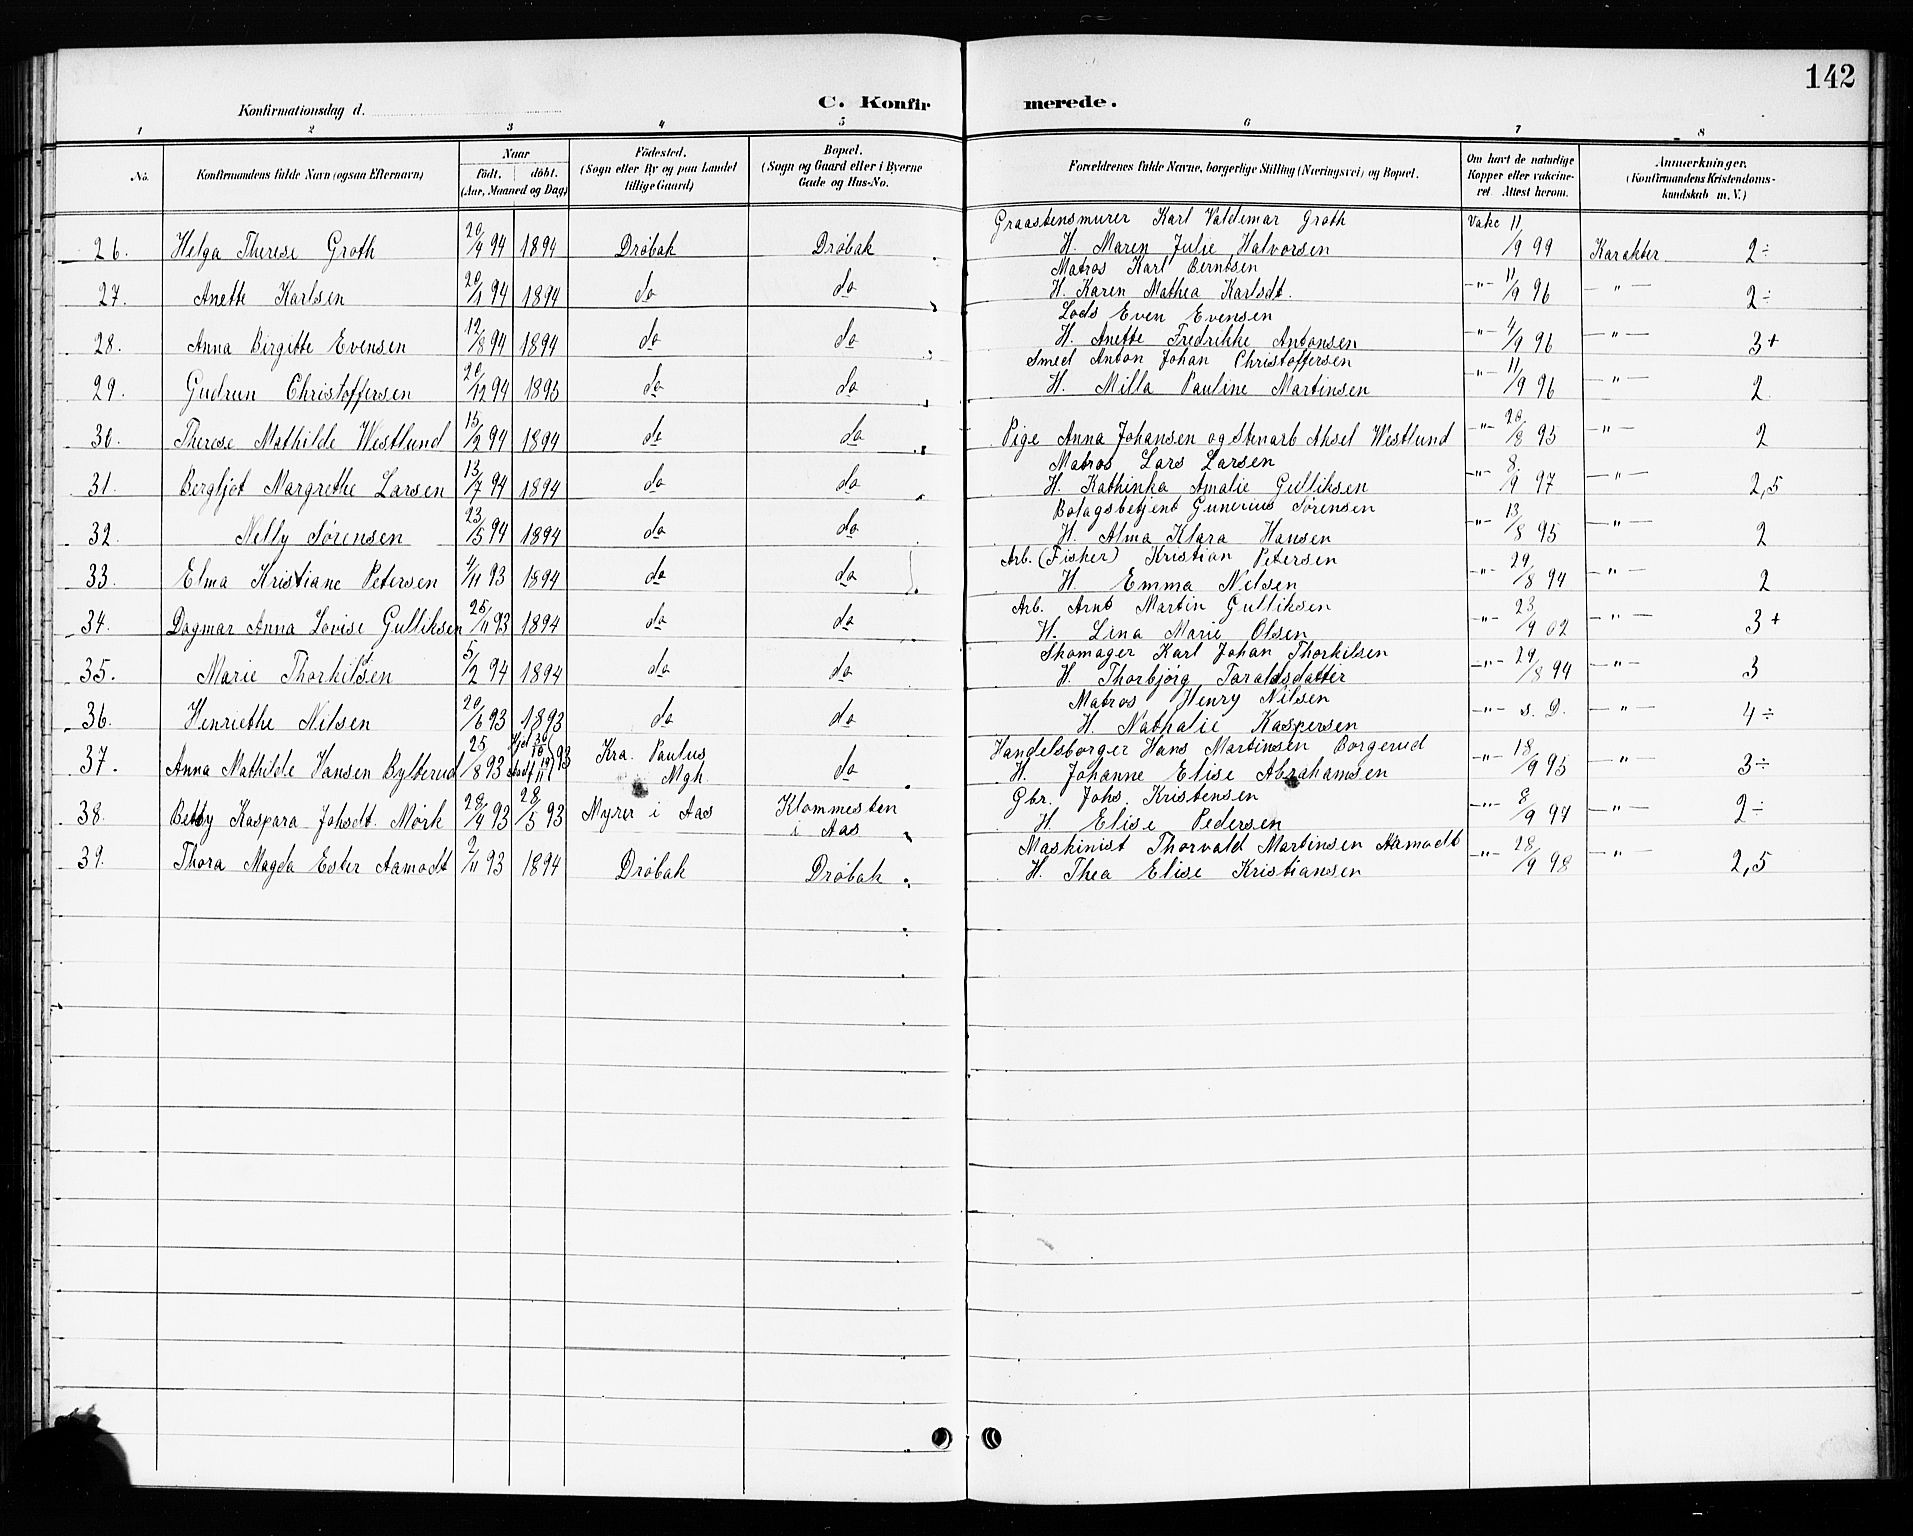 142
Konfirmationsdag d.
C. Konfirmerede.
1 2 3 4 5 6 7 8
No. Konfirmandens fulde Navn (ogsaa Efternavn) Naar födt. döbt. (Aar, Maaned og Dag) Födested. (Sogn eller By og paa Landet tillige Gaard) Bopæl. (Sogn og Gaard eller i Byerne Gade og Hus-No. Forældrenes fulde Navne, borgerlige Stilling (Næringsvei) og Bopæl. Om havt de naturlige Kopper eller vakcineret. Attest herom. Anmærkninger. (Konfirmandens Kristendomskundskab m. V.)
Graastensmurer Karl Valdemar Groth
26. Helga Therese Groth 20/9 94 1894 Drøbak Drøbak H. Maren Julie Halvorsen Vakc 11/9 99 Karakter 2÷
Matros Karl Berntsen
27. Anette Karlsen 20/1 94 1894 do do H. Karen Mathea Karlsdt. -"- 11/9 96 -"- 2÷
Lods Even Evensen
28. Anna Birgitte Evensen 12/8 94 1894 do do H. Anette Fredrikke Antonsen -"- 4/9 96 -"- 3+
Smed Anton Johan Christoffersen
29. Gudrun Christoffersen 20/12 94 1895 do do H. Milla Pauline Martinsen -"- 11/9 96 -"- 2
30. Therese Mathilde Westlund 15/2 94 1894 do do Pige Anna Johansen og Stenarb Aksel Westlund -"- 20/8 95 -"- 2
Matros Lars Larsen
31. Bergljot Margrethe Larsen 13/7 94 1894 do do H. Kathinka Amalie Gulliksen -"- 8/9 97 -"- 2,5
Bolagsbetjent Gunerius Sørensen
32. Nelly Sørensen 23/5 94 1894 do do H. Alma Klara Hansen -"- 13/8 95 -"- 2
Arb. (Fisker) Kristian Petersen
33. Elma Kristiane Petersen 4/11 93 1894 do do H. Emma Nilsen -"- 29/8 94 -"- 2
Arb. Arnt Martin Gulliksen
34. Dagmar Anna Lovise Gulliksen 25/11 93 1894 do do H. Lina Marie Olsen -"- 23/9 02 -"- 3+
Skomager Karl Johan Thorkilsen
35. Marie Thorkilsen 5/2 94 1894 do do H. Thorbjørg Taraldsdatter -"- 29/8 94 -"- 3
Matros Henry Nilsen
36. Henriethe Nilsen 20/6 93 1893 do do H. Nathalie Kaspersen -"- s. D. -"- 4÷
Handelsborger Hans Martinsen Borgerud
37. Anna Mathilde Hansen Bylterud 25/8 93 Hjd 30/10 stadf 19/11 93 Kra. Paulus Mgh. do H. Johanne Elise Abrahamsen -"- 18/9 95 -"- 3÷
Gbr. Johs. Kristensen
38. Betsy Kaspara Johsdt. Mørk 28/4 93 28/5 93 Myrer i Aas Klommesten i Aas H. Elise Pedersen -"- 8/9 94 -"- 2÷
Maskinist Thorvald Martinsen Aamodt
39. Thora Magda Ester Aamodt 2/11 93 1894 Drøbak Drøbak H. Thea Elise Kristiansen -"- 28/9 98 -"- 2,5